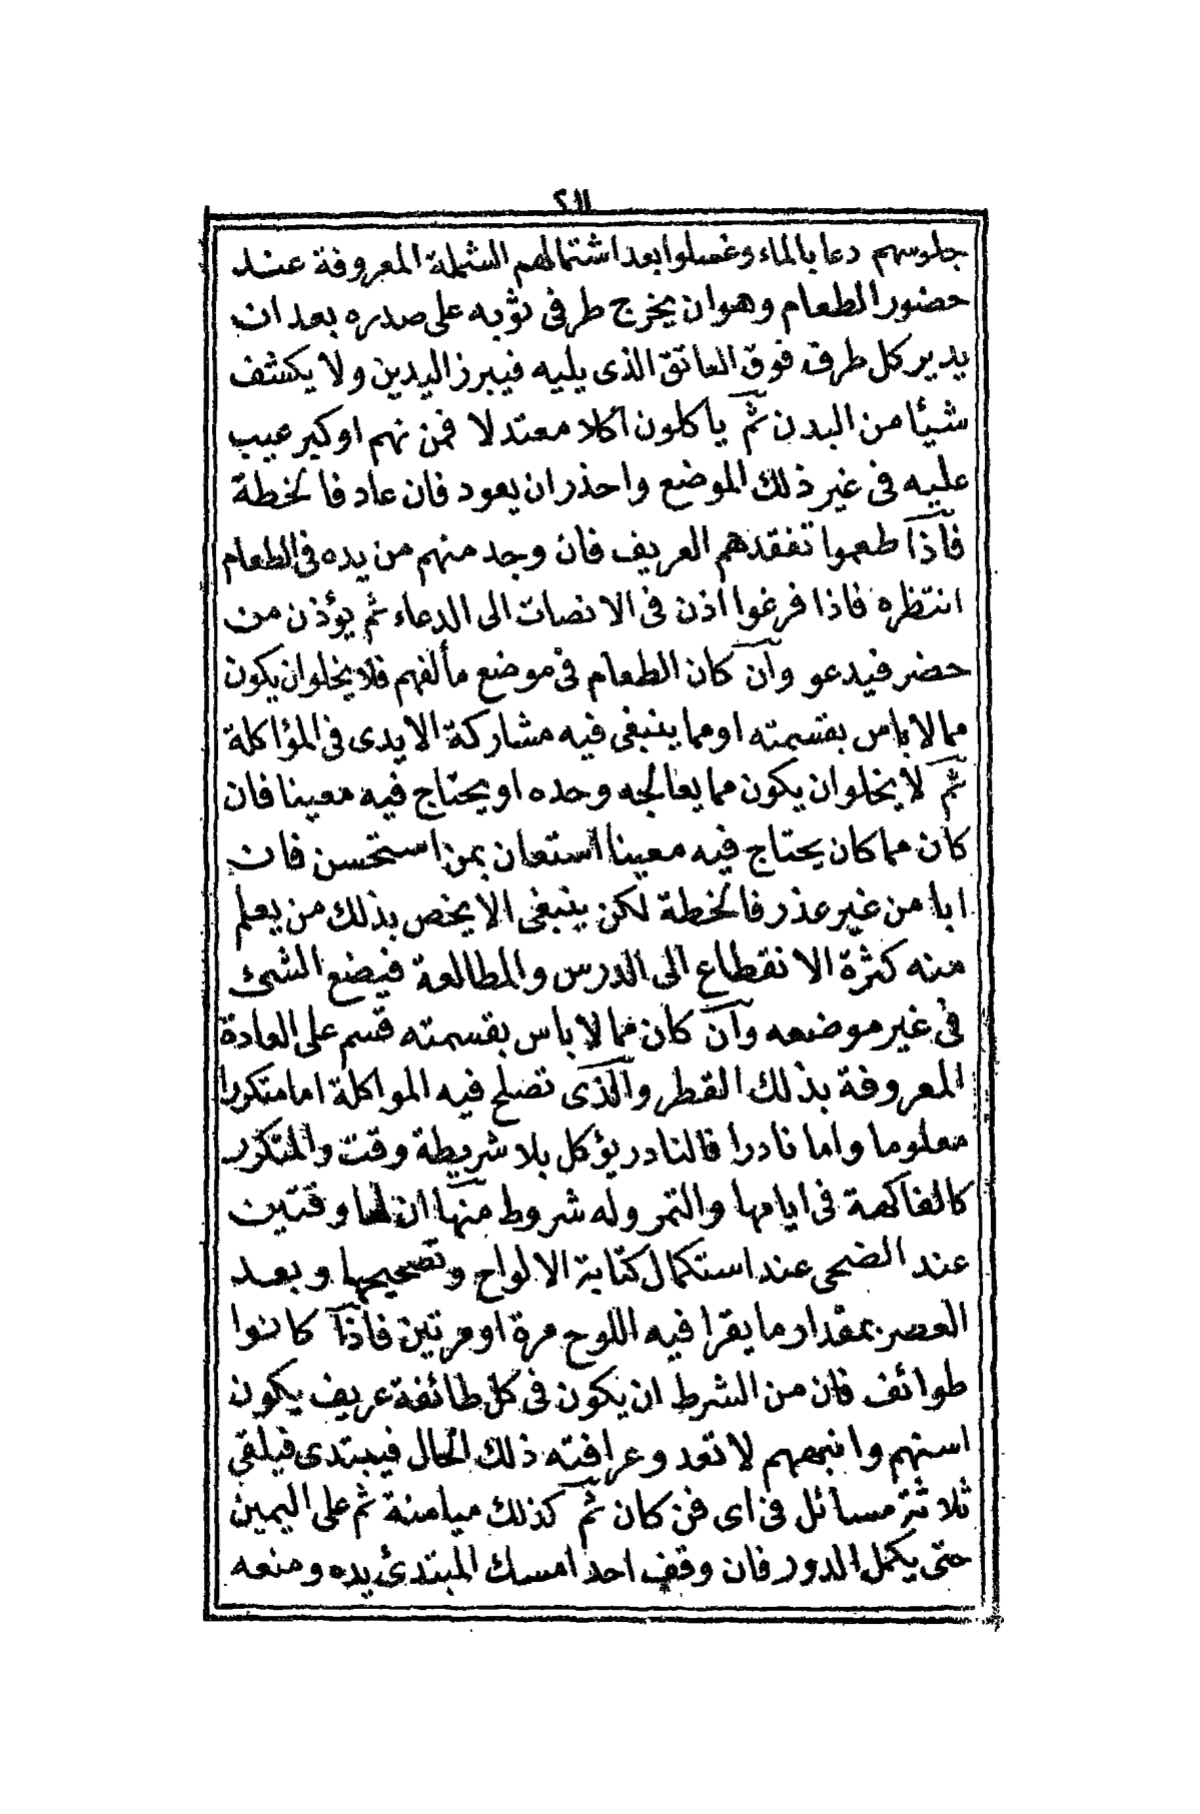 ٢١١
جلوسهم دعا بالماء وغسلوا بعد اشتمالهم الشملة المعروفة عند
حضور الطعام وهو ان يخرج طرفى ثوبه على صدره بعد ان
يدير كل طرف فوق العاتق الذى يليه فيبرز اليدين ولا يكشف
شيئا من البدن ثم ياكلون اكلا معتدلا فمن نهم او كبر عيب
عليه فى غير ذلك الموضع واحذر ان يعود فان عاد فالخطة
فاذا طعموا تفقدهم العريف فان وجد منهم من يده فى الطعام
انتظره فاذا فرغوا اذن فى الانصات الى الدعاء ثم يؤذن من
حضر فيدعو وان كان الطعام فى موضع مألفهم فلا يخلوا ان يكون
مما لا باس بقسمته او مما ينبغى فيه مشاركة الايدى فى المؤاكلة
ثم لا يخلوا ان يكون مما يعالجه وحده او يحتاج فيه معينا فان
كان مما كان يحتاج فيه معينا استعان بمن استحسن فان
ابا من غير عذر فالخطة لكن ينبغى الا يخص بذلك من يعلم
منه كثرة الانقطاع الى الدرس والمطالعة فيضع الشئ
فى غير موضعه وان كان مما لا باس بقسمته قسم على العادة
المعروفة بذلك القطر والذى تصلح فيه المواكلة اما متكررا
معلوما واما نادرا فالنادر يؤكل بلا شريطة وقت والمتكرر
كالفاكهة فى ايامها والتمر وله شروط منها ان لها وقتين
عند الضحى عند استكمال كتابة الالواح وتصحيحها وبعد
العصر بمقدار ما يقرا فيه اللوح مرة او مرتين فاذا كانوا
طوائف فان من الشرط ان يكون فى كل طائفة عريف يكون
اسنهم وانبههم لا تعد وعرافته ذلك الحال فيبتدى فيلقى
ثلاثة مسائل فى اى فن كان ثم كذلك ميامنة ثم على اليمين
حتى يكمل الدور فان وقف احد امسك المبتدئ يده ومنعه